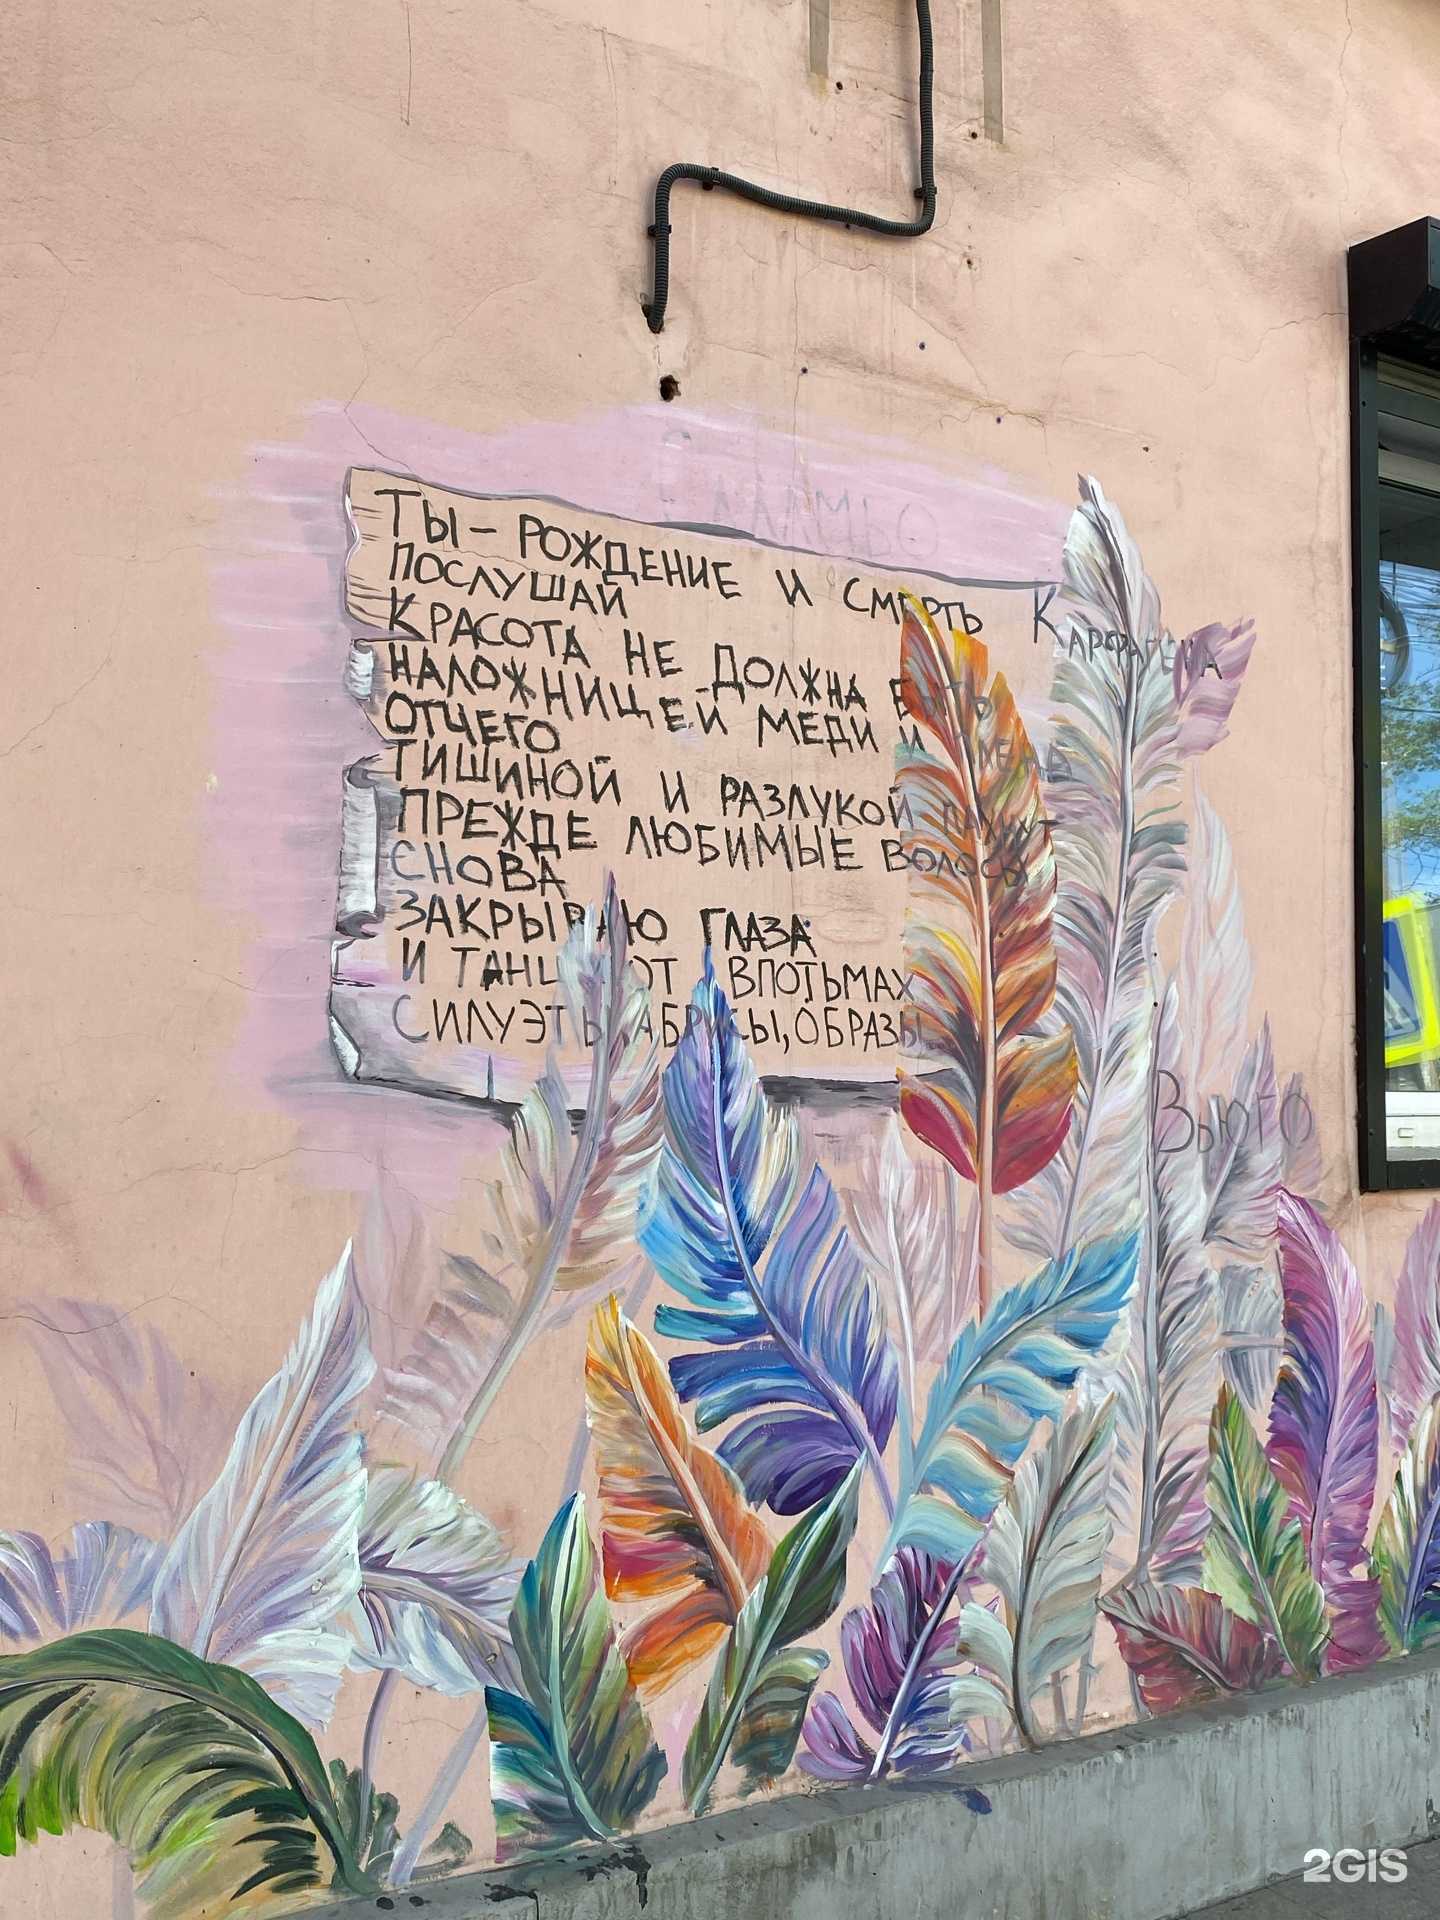 САЛАМБО
ТЫ - РОЖДЕНИЕ И СМЕРТЬ КАРФАГЕНА
ПОСЛУШАЙ
КРАСОТА НЕ ДОЛЖНА БЫТЬ
НАЛОЖНИЦЕЙ МЕДИ И
ОТЧЕГО
ТИШИНОЙ И РАЗЛУКОЙ ПАХНУТ
ПРЕЖДЕ ЛЮБИМЫЕ ВОЛОСЫ
СНОВА
ЗАКРЫВАЮ ГЛАЗА
И ТАНЦУЮТ ВПОТЬМАХ
СИЛУЭТЫ, АБРИСЫ, ОБРАЗЫ
ВЬЮГО
2GIS